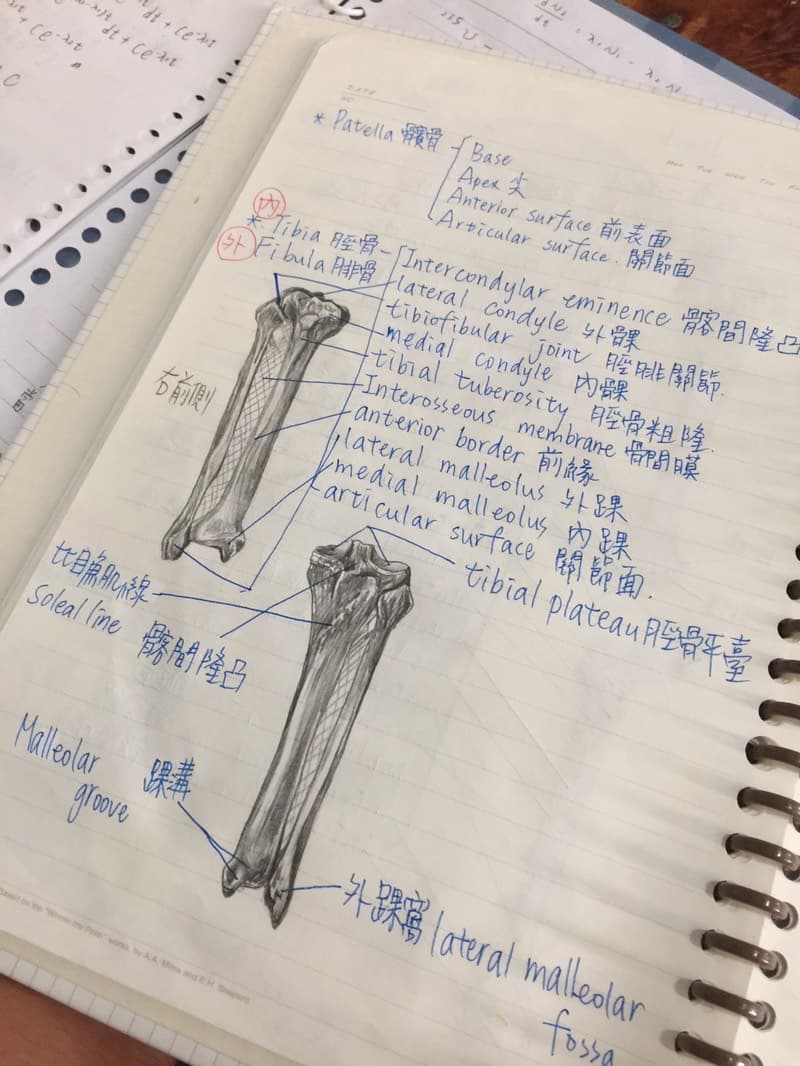 * Patella 髕骨
Base
Apex 尖
Anterior surface 前表面
Articular surface. 關節面
內
* Tibia 脛骨
外
Fibula 腓骨
Intercondylar eminence 髁間隆凸
lateral condyle 外髁
tibiofibular joint 脛腓關節.
medial condyle 內髁
tibial tuberosity 脛骨粗隆.
Interosseous membrane 骨間膜
anterior border 前緣
lateral malleolus 外踝
medial malleolus 內踝
articular surface 關節面.
右前側
tibial plateau 脛骨平臺
比目魚肌線
soleal line
髁間隆凸
Malleolar groove
踝溝
外踝窩 lateral malleolar
fossa